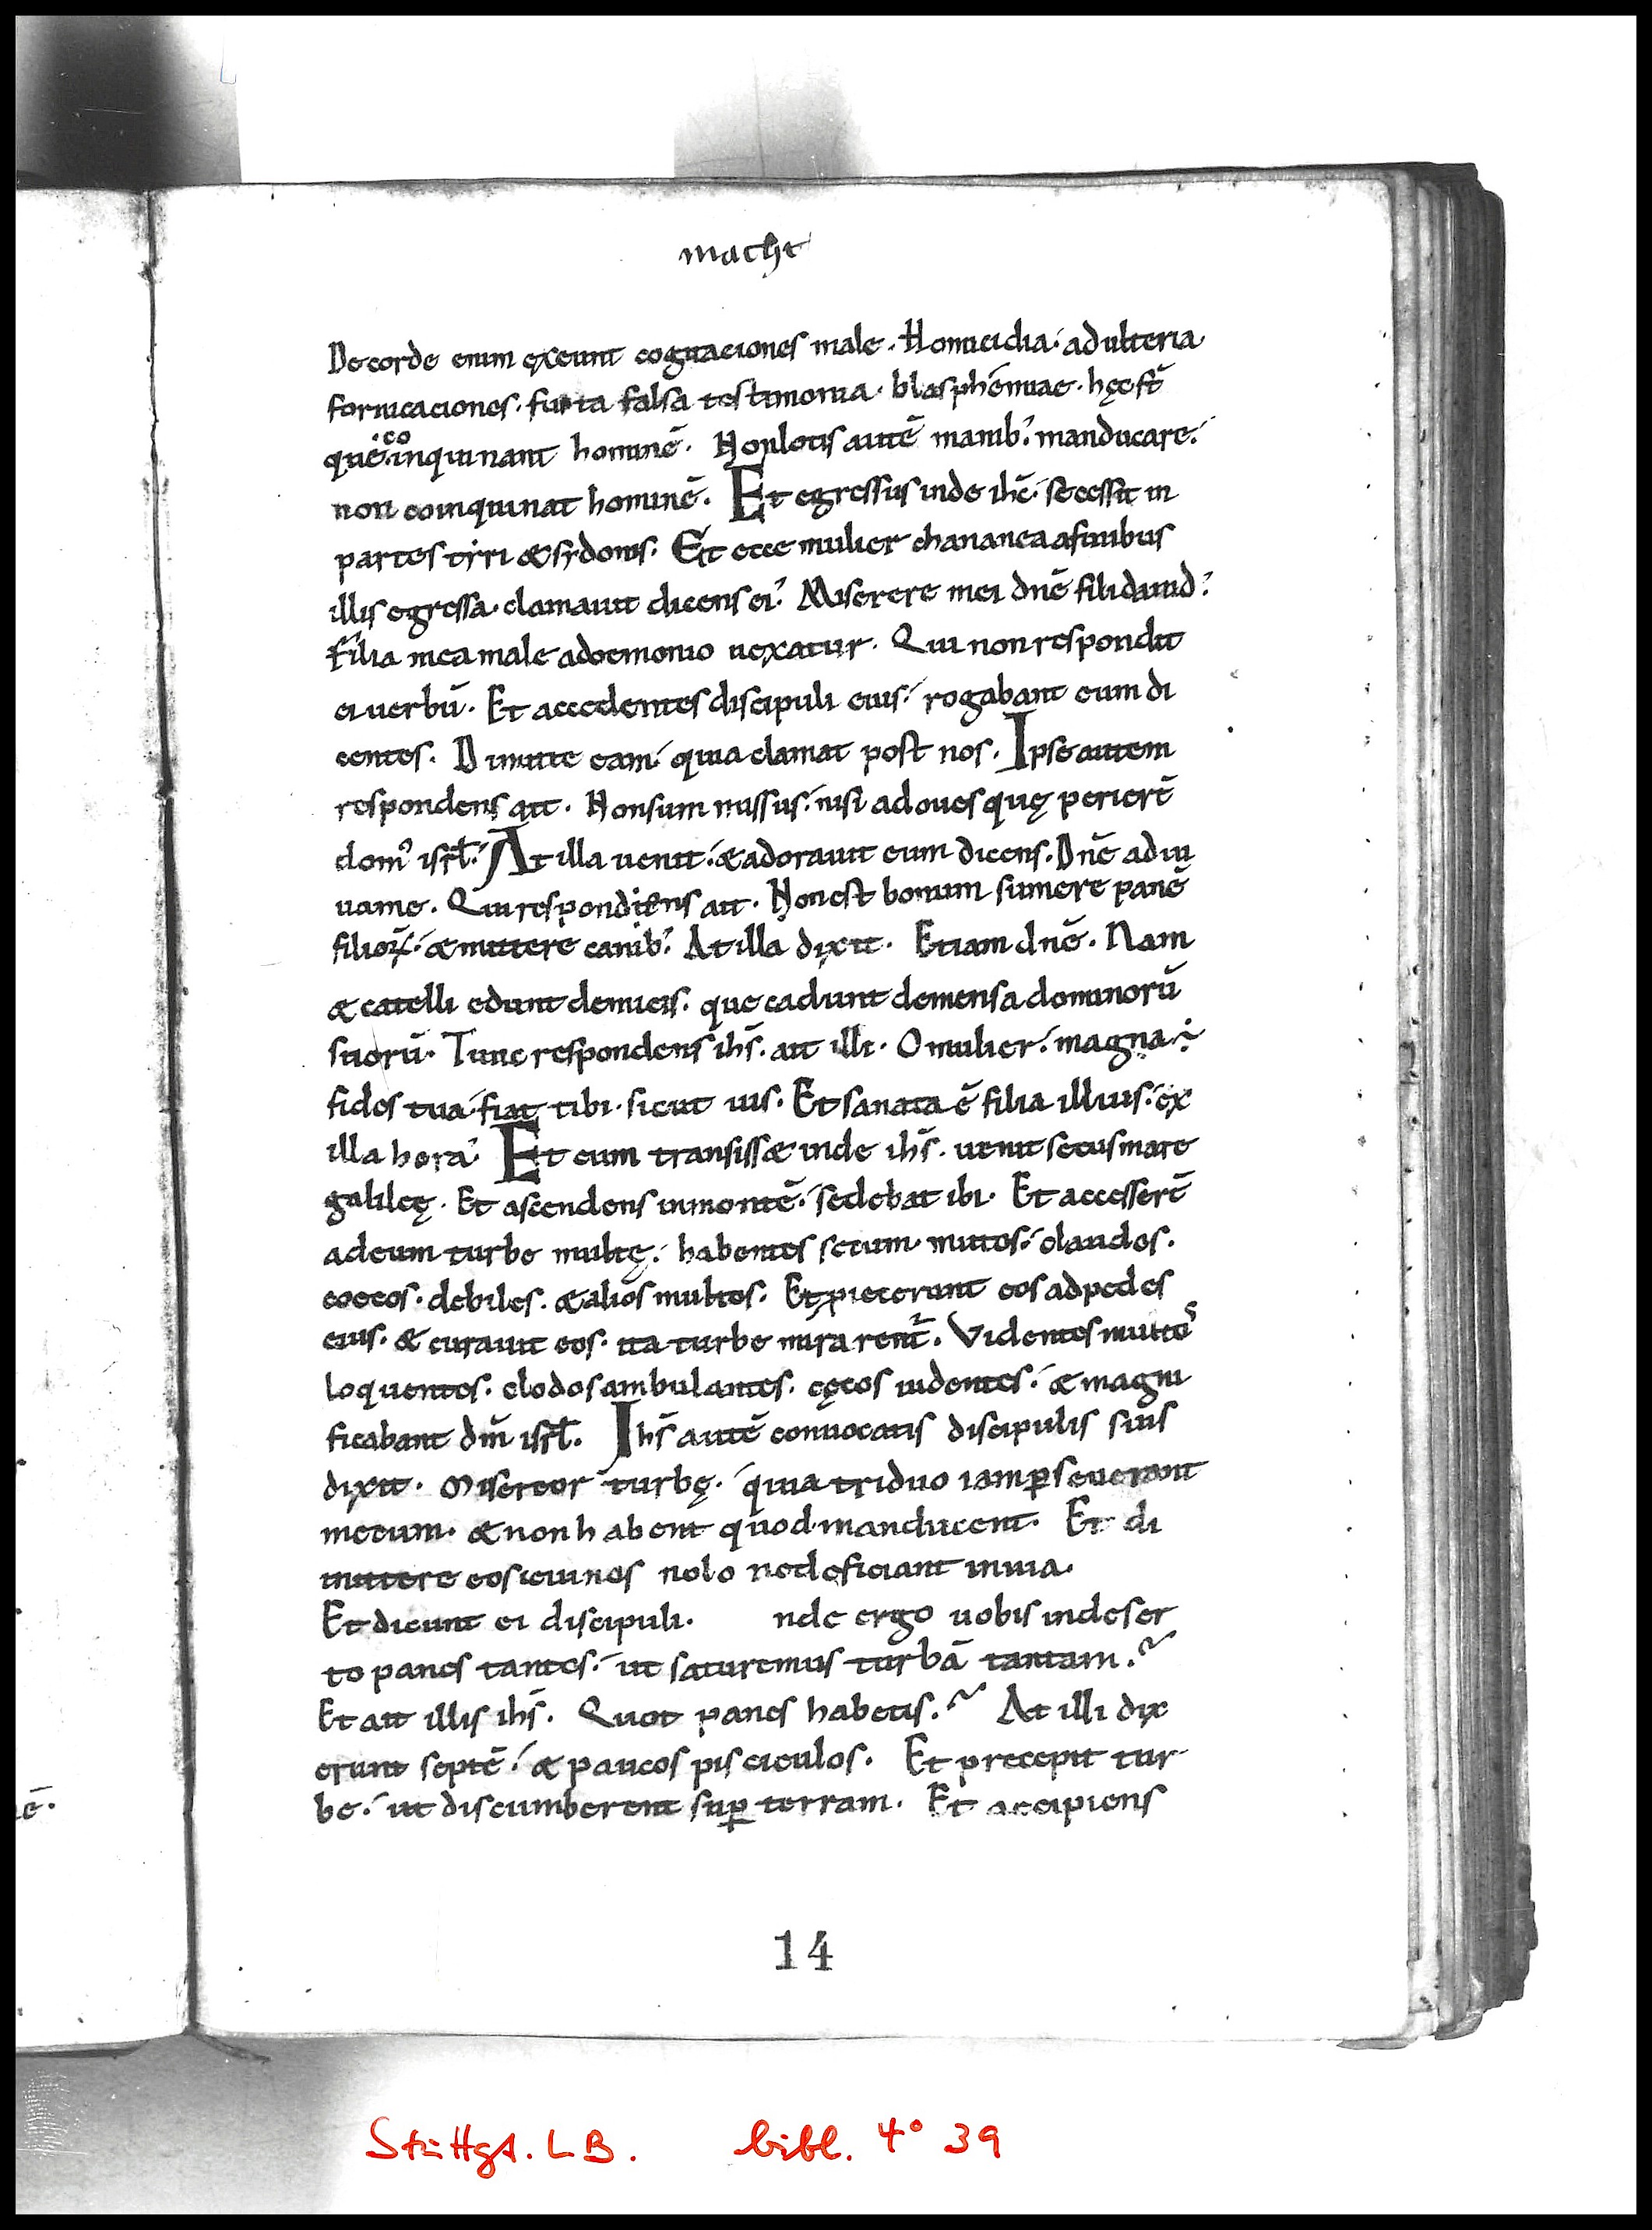 macht
De corde enim exeunt cognaciones male. Homicidia. adulteria.
fornicaciones. furta falsa testimonia. blasphemiae. hęc st̄
que coinquinant hominē. Non lotis autē manib; manducare.
non coinquinat hominē. Et egressus inde ihc̄. secessit in
partes tyri & sydonis. Et ecce mulier chananea a finibus
illis egressa. clamauit dicens ei. Miserere mei dnē fili dauid.
Filia mea male a doemonio uexatur. Qui non respondit
ei uerbū. Et accedentes discipuli eius. rogabant eum di
centes. Dimitte eam. quia clamat post nos. Ipse autem
respondens ait. Non sum missus. nisi ad oues quę periert̄
dom' isrl̄. At illa uenit. & adorauit eum dicens. Dnē adiu
uame. Qui respondens ait. Non est bonum sumere panē
filioꝝ. & mittere canib; At illa dixit. Etiam dnē. Nam
& catelli edunt de micis. que cadunt de mensa dominorū
suorū. Tunc respondens ihs̄. ait illi. O mulier. magna ÷
fides tua. fiat tibi. sicut uis. Et sanata ē filia illius. ex
illa hora. Et cum transiss& inde ihs̄. uenit secus mare
galileę. Et ascendens in montē. sedebat ibi. Et accessert̄
ad eum turbe multę. habentes secum. mutos. claudos.
coecos. debiles. & alios multos. Et piecerunt eos ad pedes
eius. & curauit eos. ita turbe mirarent̄. Videntes muttos
loquentes. clodos ambulantes. cęcos uidentes. & magni
ficabant dm̄ isrl̄. Ihs̄ autē conuocatis discipulis suis
dixit. Misereor turbę. quia triduo iam ꝑseuerant
mecum. & non habent quod manducent. Et di
mittere eos ieiunos nolo ne deficiant in uia.
Et dicunt ei discipuli. nde ergo uobis in deser
to panes tantos. ut saturemus turbā tantam.
Et ait illis ihs̄. Quot panes habetis. At illi dix
erunt septē. & paucos pisciculos. Et precepit tur
be. ut discumberent suꝑ terram. Et accipiens
14
Stuttgt. LB. bibl. 4° 39